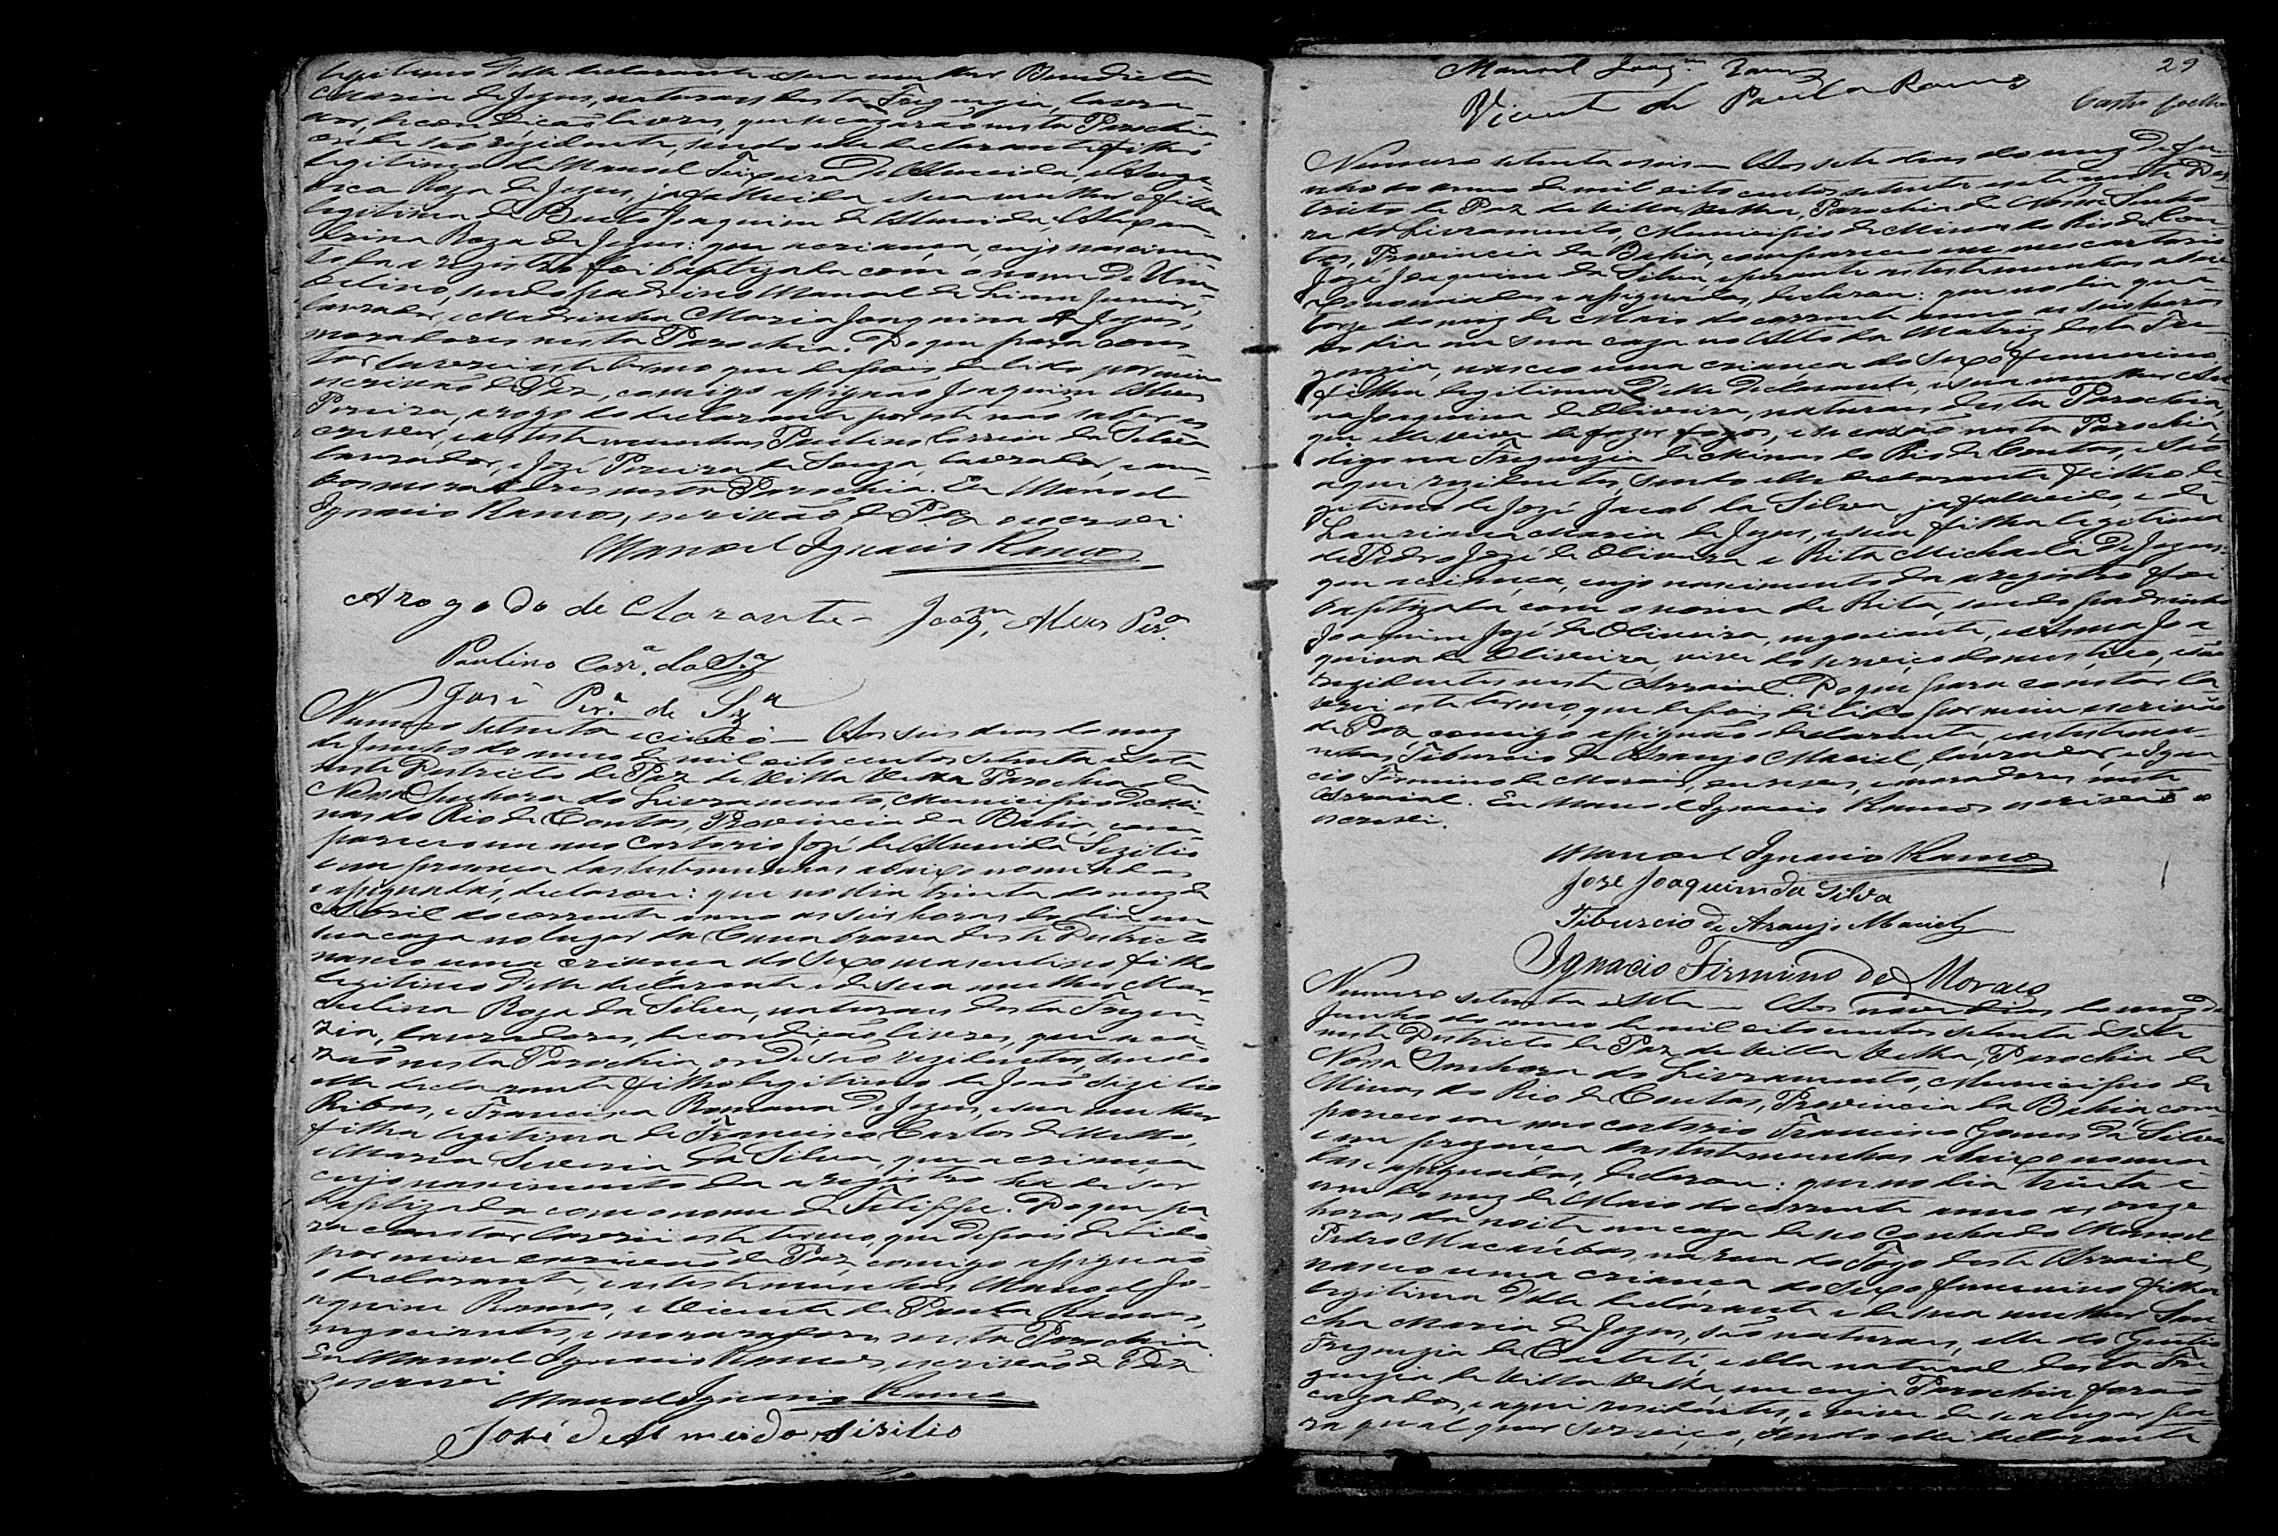 legitimo d'elle declarante e sua mulher Benedicta
Maria de Jezus, naturaes desta Freguezia, lavra-
dor, de condição livres, que se cazarão nesta Parochia
onde são rezidentes, sendo elle declarante filho
legitimo de Manoel Teixeira de Almeida, e Ange-
lica Roza de Jezus, ja fallecida e sua mulher filha
legitima de Bento Joaquim de Almeida, e Alexan-
drina Roza de Jezus: que a criança, cujo nascimen-
to da a registro foi baptizada com o nome de
sendo padrinho Manoel de Lima Junior,
lavrador, e Madrinha Maria Joaquina de Jezus,
moradores nesta Parochia. Do que para cons-
tar lavrei este termo que depois de lido por mim
escrivão de Paz, comigo assignão Joaquim Alves
Pereira, a rogo do declarante por este não saber es-
crever, e as testemunhas Paulino Correia da Silva
lavrador, e Jozé Pereira de Souza, lavrador, e am-
bos moradores nesta Parochia. Eu Manoel
Ignacio Ramos, escrivão de Paz o escrevi
Manoel Ignacio Ramos
Arogo do de Clarante - Joaqm. Alves Perª
Paulino Corrª. da Sª
José Perª. de Sza
Numero setenta e cinco - Aos seis dias do mez
de Junho do anno de mil oito centos setenta e sete
neste Destricto de Paz de Villa Velha Parochia de
Nossa Senhora do Livramento, Municipio de Mi-
nas do Rio de Contas, Provincia da Bahia, com-
pareceo em meo Cartorio Jozé de Almeida Sizilio
e em prezença das testemunhas abaixo nomeadas
e assignadas, declarou: que no dia trinta do mez de
Abril do corrente anno as seis horas do dia em
sua caza no lugar da Canna brava deste Destricto
nasceo uma criança do sexo masculino filho
legitimo d'elle declarante e de sua mulher Mar-
culina Roza da Silva, naturaes desta Fregue-
zia, lavradores, de condição livres, que se ca-
zarão nesta Parochia, onde são rezidentes, sendo
elle declarante filho legitimo de João Sizilio
Ribas, e Francisca Romana de Jezus, e sua mulher
filha legitima de Francisco Carlos de Mello,
e Maria Severia da Silva, que a criança
cujo nascimento da a registro ha de ser
baptizada com o nome de Filippe. Do que pa-
ra constar lavrei este termo, que depois de lido
por mim escrivão de Paz, comigo assignão
o declarante, e as testemunhas Manoel Jo-
aquim Ramos, e Vicente de Paula Ramos,
negociantes, e moradores nesta Parochia
Eu Manoel Ignacio Ramos, escrivão de Paz
o escrevi
Manoel Ignacio Ramos
José de Almeida Sisilio
29
Manoel Joaqm Ramos
Vicente de Paula Ramos
Castro Coelho
Numero setenta e seis - Aos sete dias do mez de Ju-
nho do anno de mil oito centos setenta e sete neste Des-
tricto de Paz de Villa Velha, Parochia de Nossa Senho-
ra do Livramento, Municipio de Minas do Rio de Con-
tas, Provincia da Bahia, compareceo em meo cartorio
Jozé Joaquim da Silva, e perante as testemunhas abai-
xo nomeadas e assignadas, declarou: que no dia qua-
torze do mez de Maio do corrente anno as seis horas
do dia em sua caza no Alto da Matriz desta Fre-
guezia, nasceo uma criança do sexo femenino,
filha legitima d'elle declarante, e sua mulher An-
na Joaquina de Oliveira, naturaes desta Parochia,
que elle vive de fazer fogos, e se cazarão nesta Parochia,
digo na Freguezia de Minas do Rio de Contas, e são
aqui rezidentes, sendo elle declarante filho le-
gitimo de Jozé Jacob da Silva ja fallecido, e de
Lauriana Maria de Jezus, e sua filha legitima
de Pedro Jozé de Oliveira e Rita Michaela de Jezus:
que a criança, cujo nascimento da a registro foi
baptizada com o nome de Rita, sendo padrinho
Joaquim Jozé de Oliveira, negociante, e Anna Joa-
quina de Oliveira, vive do serviço domestico, e são
rezidentes neste Arraial. Do que para constar la-
vrei este termo, que depois de lido por mim escrivão
de Paz, comigo assignão o declarante, e as testemu-
nhas, Tiburcio de Araujo Maciel, lavrador, e Igna-
cio Firmino de Moraes, e moradores neste
Arraial. Eu Manoel Ignacio Ramos escrivão o
escrevi.
Manoel Ignacio Ramos
Jozé Joaquim da Silva
Tiburcio de Araujo Maciel
Ignacio Firmino de Moraes
Numero setenta e sete - Aos nove dias do mez de
Junho do anno de mil oito centos setenta e sete
neste Destricto de Paz de Villa Velha, Parochia de
Nossa Senhora do Livramento, Municipio de
Minas do Rio de Contas, Provincia da Bahia, com-
pareceo em meo cartorio Francisco Gomes da Silva
e em prezença das testemunhas abaixo nomea-
das e assignadas, declarou: que no dia trinta e
um do mez de Maio do corrente anno as onze
horas da noite em caza de seo Cunhado Manoel
Pedro Macaúbas, na rua do Fogo deste Arraial,
nasceo uma criança do sexo femenino filha
legitima d'elle declarante e de sua mulher San-
cha Maria de Jezus, são naturaes, elle do Gentio
Freguezia de Caetité, e ella natural desta Fre-
guezia de Villa Velha, em cuja Parochia forão
cazados, e aqui rezidentes, e vive de se alugar pa-
ra qual quer serviço, sendo elle declarante